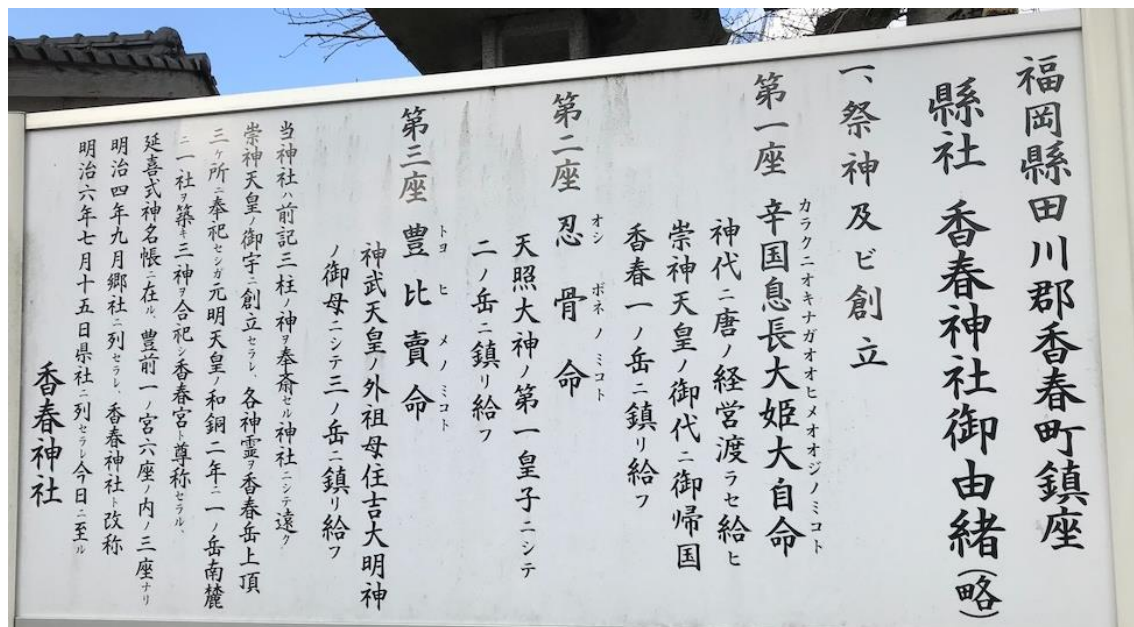 福岡縣田川郡香春町鎮座
縣社 香春神社御由緒(略)
一、祭神及ビ創立
第一座 辛国息長大姫大自命
カラクニオキナガオオヒメオオジノミコト
神代ニ唐ノ経営渡ラセ給ヒ
崇神天皇ノ御代ニ御帰国
香春一ノ岳ニ鎮リ給フ
第二座 忍骨命
オシ ボネノミコト
天照大神ノ第一皇子ニシテ
二ノ岳ニ鎮リ給フ
第三座 豊比賣命
トヨ ヒ メノミコト
神武天皇ノ外祖母住吉大明神
ノ御母ニシテ三ノ岳ニ鎮リ給フ
当神社ハ前記三柱ノ神ヲ奉斎セル神社ニシテ遠ク
崇神天皇ノ御宇ニ創立セラレ、各神霊ヲ香春岳上頂
三ヶ所ニ奉祀セシガ元明天皇ノ和銅二年ニ一ノ岳南麓
ニ一社ヲ築キ三神ヲ合祀シ香春宮ト尊称セラル、
延喜式神名帳ニ在ル、豊前一ノ宮六座ノ内ノ三座ナリ
明治四年九月郷社ニ列セラレ、香春神社ト改称
明治六年七月十五日県社ニ列セラレ今日ニ至ル
香春神社